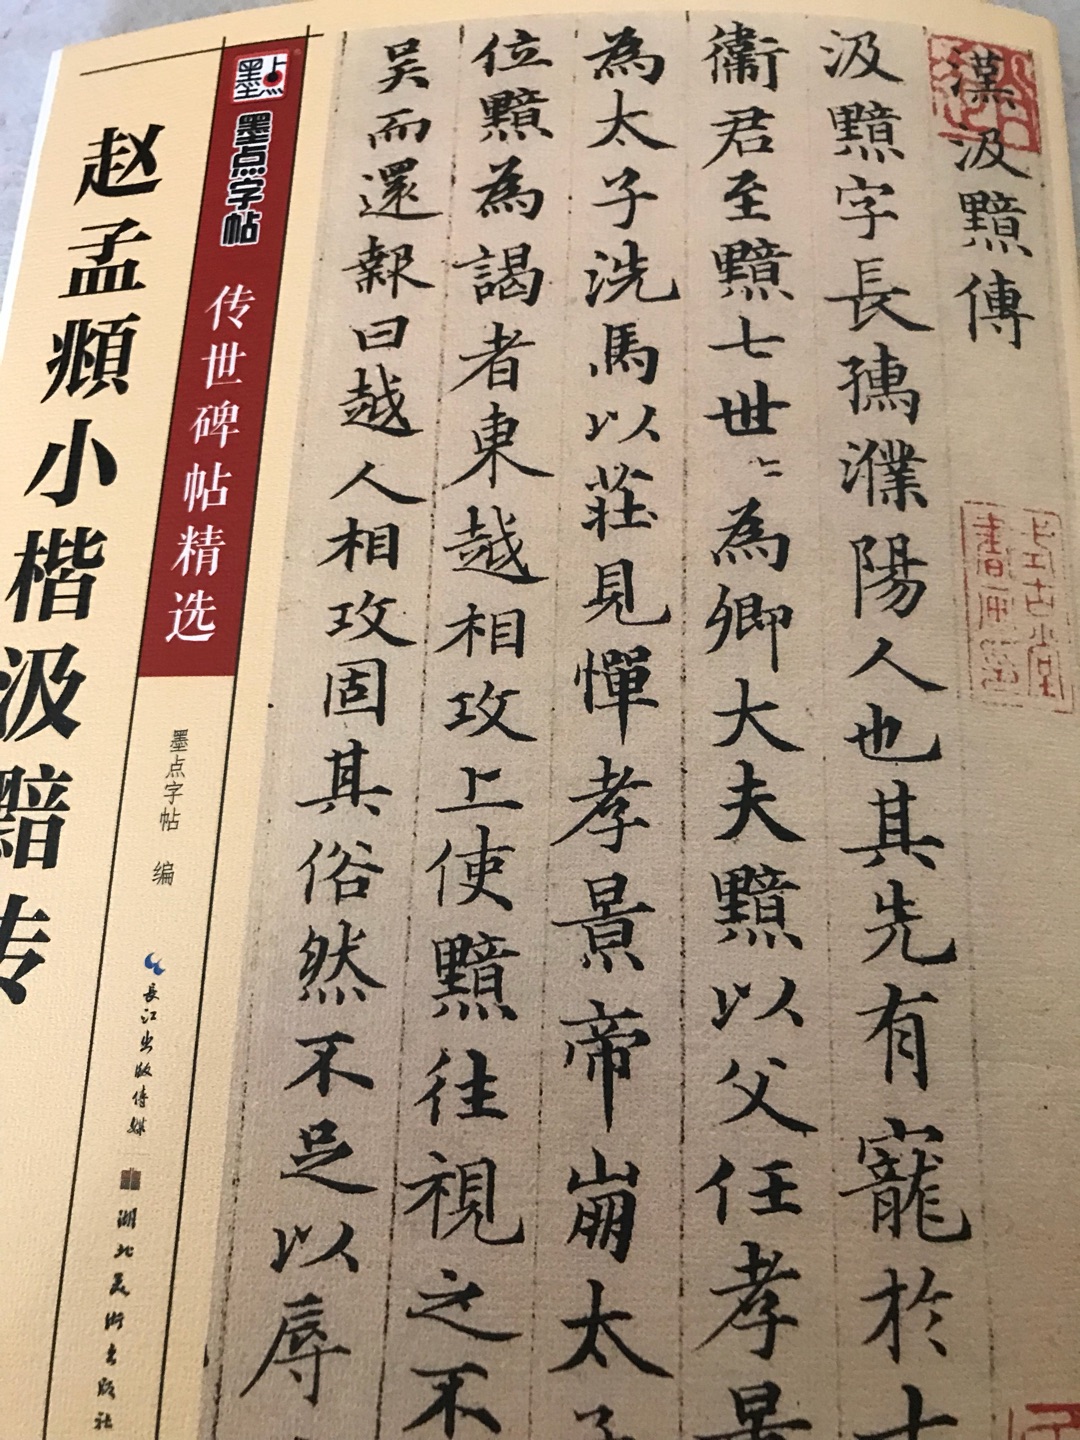 漢汲黯傳
汲黯字長孺濮陽人也其先有寵於
衞君至黯七世〻為卿大夫黯以父任孝景
為太子洗馬以莊見憚孝景帝崩太子
位黯為謁者東越相攻上使黯往視之不
吴而還報曰越人相攻固其俗然不足以辱
墨点字帖
传世碑帖精选
墨点字帖 编
長江出版传媒
湖北美術出版社
赵孟頫小楷汲黯传